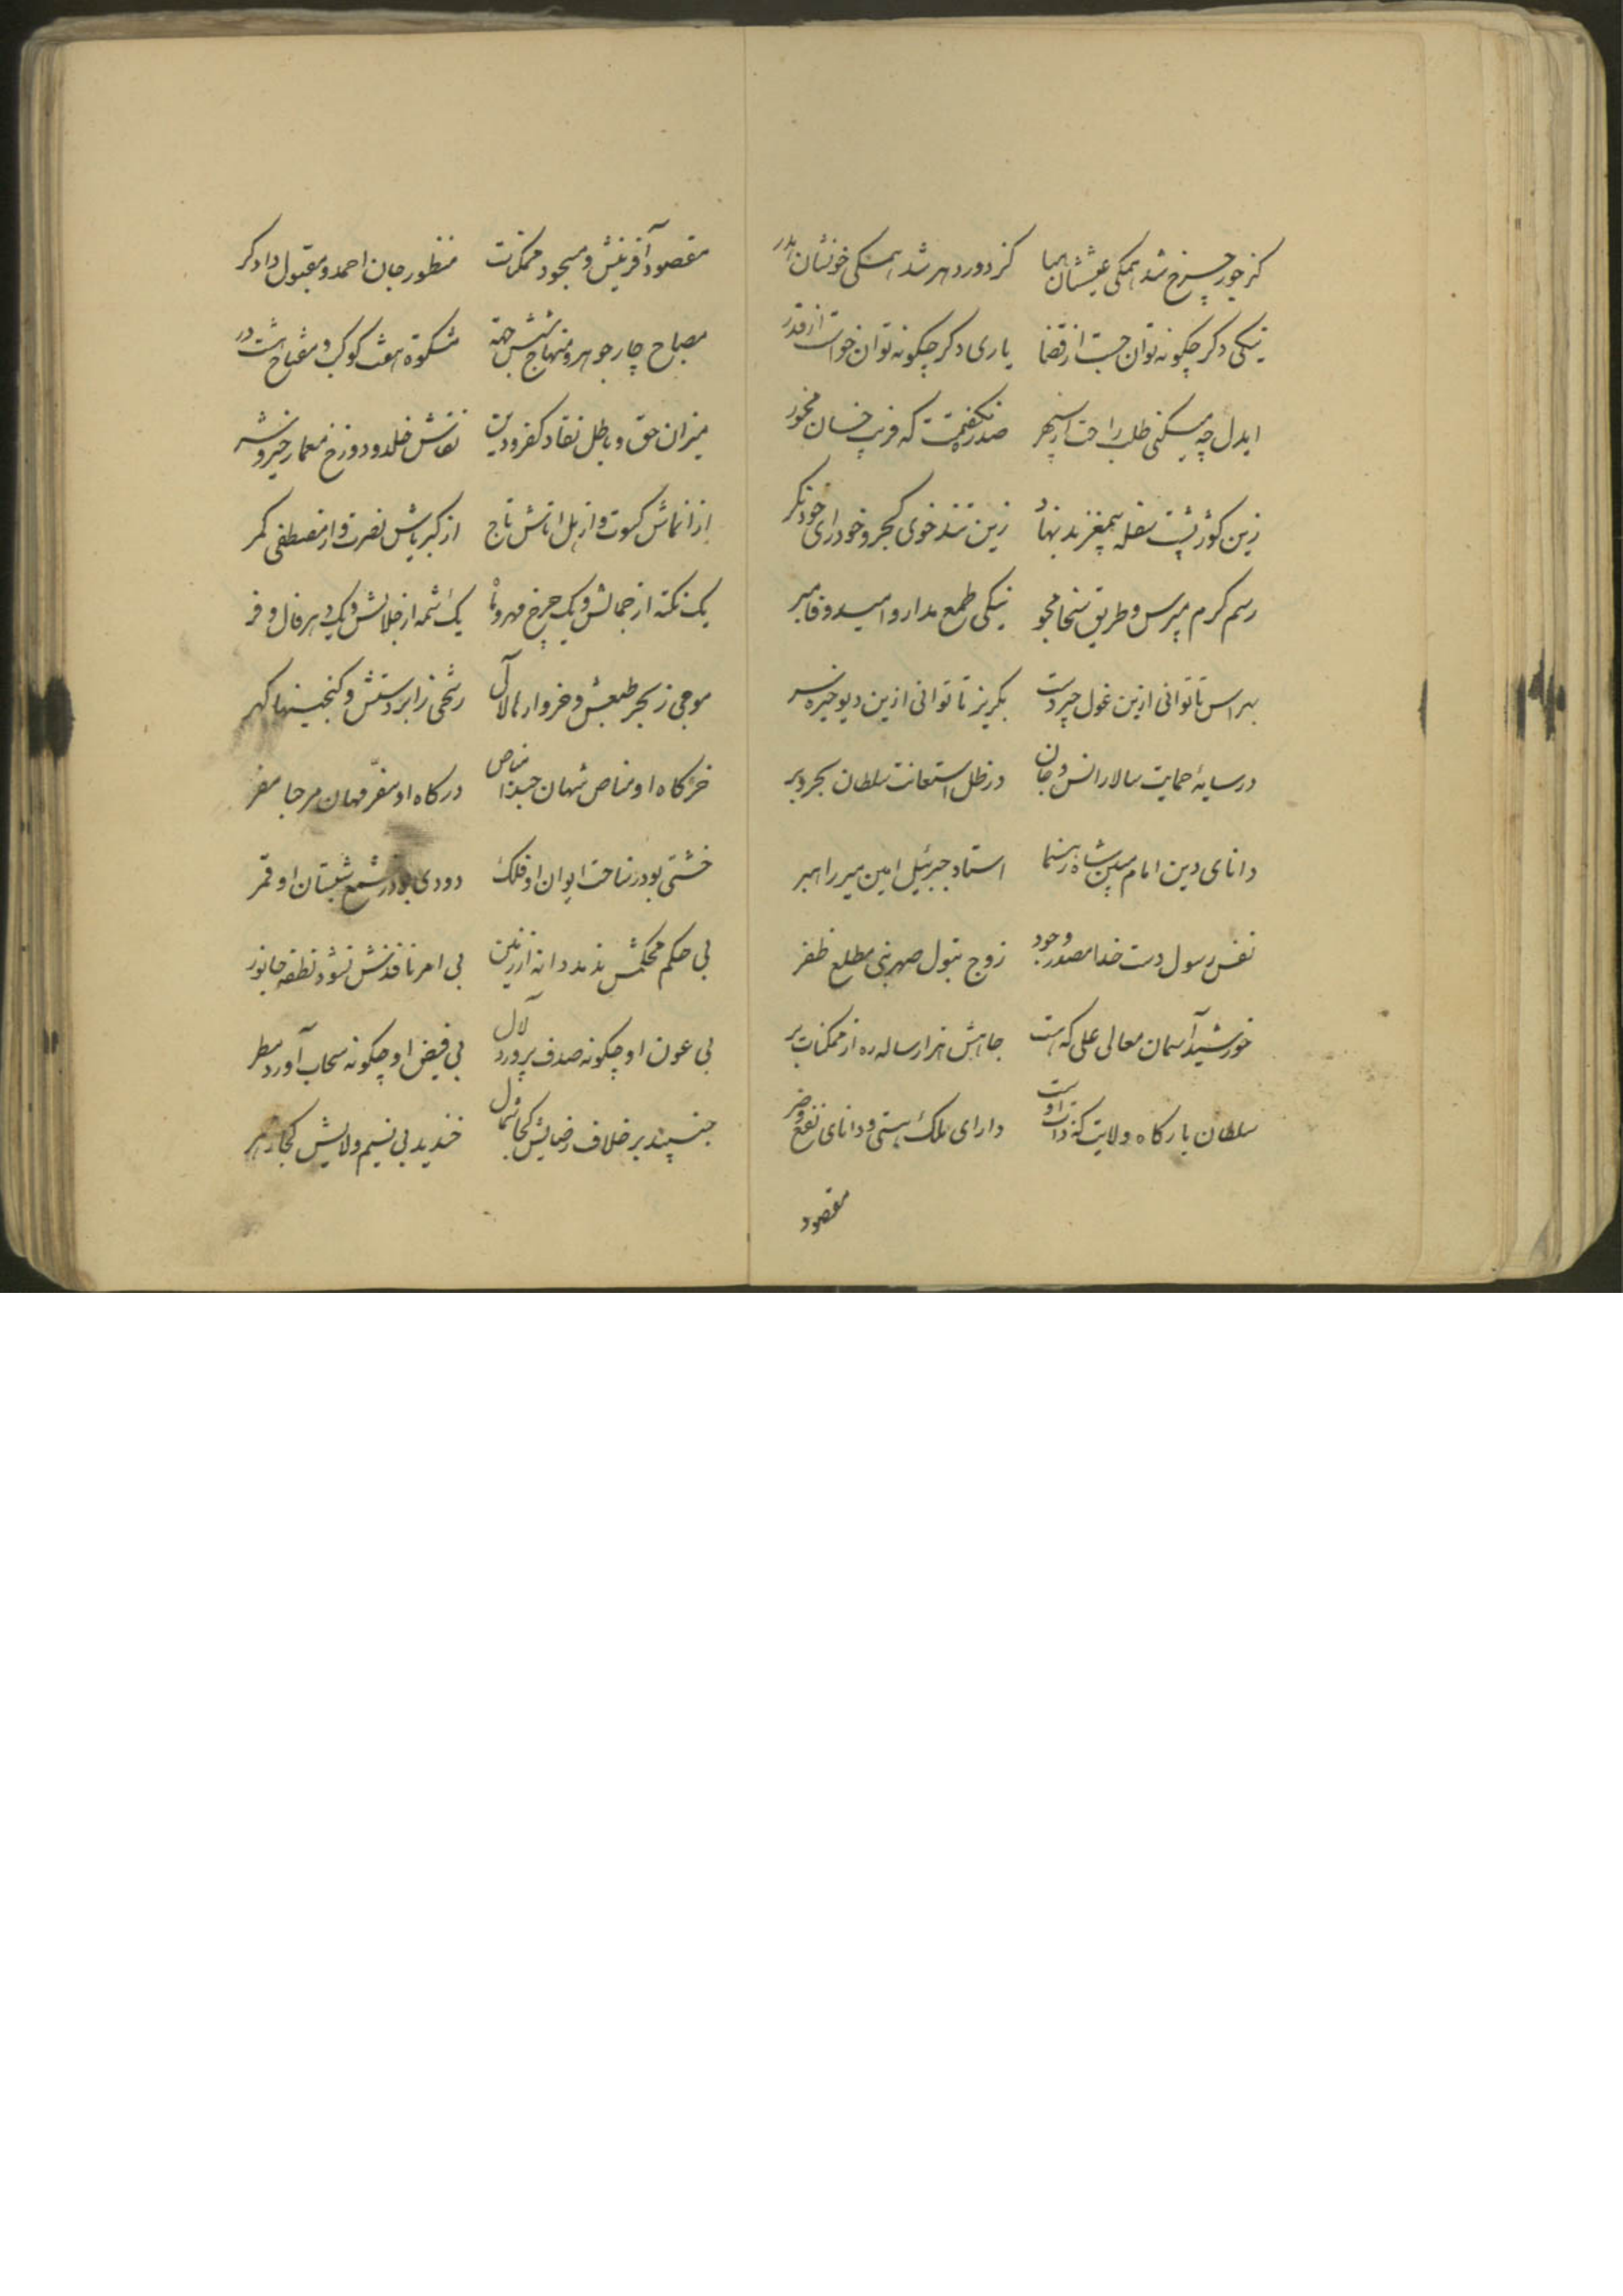 کز جور چرخ شد همگی عیششان هبا کز دور دهر شد همگی خونشان هدر
نیکی دکر چکونه توان جست از قضا یاری دکر چکونه توان خواست از قدر
ایدل چه میکنی طلب راحت از سپهر صدره نکفتمت که فریب خسان مخور
زین کوژ پشت سفله بیمغز بد نهاد زین تند خوی کجرو خودرای خود نکر
رسم کرم مپرس و طریق سخا مجو نیکی طمع مدار و امید وفا مبر
بهراس تا توانی ازین غول چیردست بکریز تا توانی ازین دیو خیره سر
در سایهٔ حمایت سالار انس و جان در ظل استعانت سلطان بحر و بر
دانای دین امام مبین شاه رهنما استاد جبرئیل امین میر راهبر
نفس رسول دست خدا مصدر وجود زوج بتول صهر نبی مطلع ظفر
خورشید آسمان معالی علی که هست جاهش هزار ساله ره از ممکنات بر
سلطان بارکاه ولایت که ذات اوست دارای ملک هستی و دانای نفع و ضر
مقصود
مقصود آفرینش و مسجود ممکنات منظور جان احمد و مقبول دادکر
مصباح چار جوهر و منهاج شش جهة مشکوة هفت کوکب و مفتاح هشت در
میزان حق و باطل نقاد کفر و دین نقاش خلد و دوزخ معمار خیر و شر
از انماش کسوت و از هل اتاش تاج از کبریاش نصرت و از مصطفی کمر
یک نکته از جمالش و یک چرخ مهر و ماه یک شمه از جلالش و یک دهر فال و فر
موجی ز بحر طبعش و خروارها لآلی رشحی ز ابر دستش و کنجینها کهر
خرکاه او مناص شهان حبذا مناص درکاه او مفر مهان مرحبا مفر
خشتی بود ز ساحت ایوان او فلک دودی بود ز شمع شبستان او قمر
بی حکم محکمش ندمد دانه از زمین بی امر نافذش نشود نطفه جانور
بی عون او چکونه صدف پرورد لآل بی فیض او چکونه سحاب آورد مطر
جنبید بر خلاف رضایش کجا شمال خندید بی نسیم ولایش کجا زهر